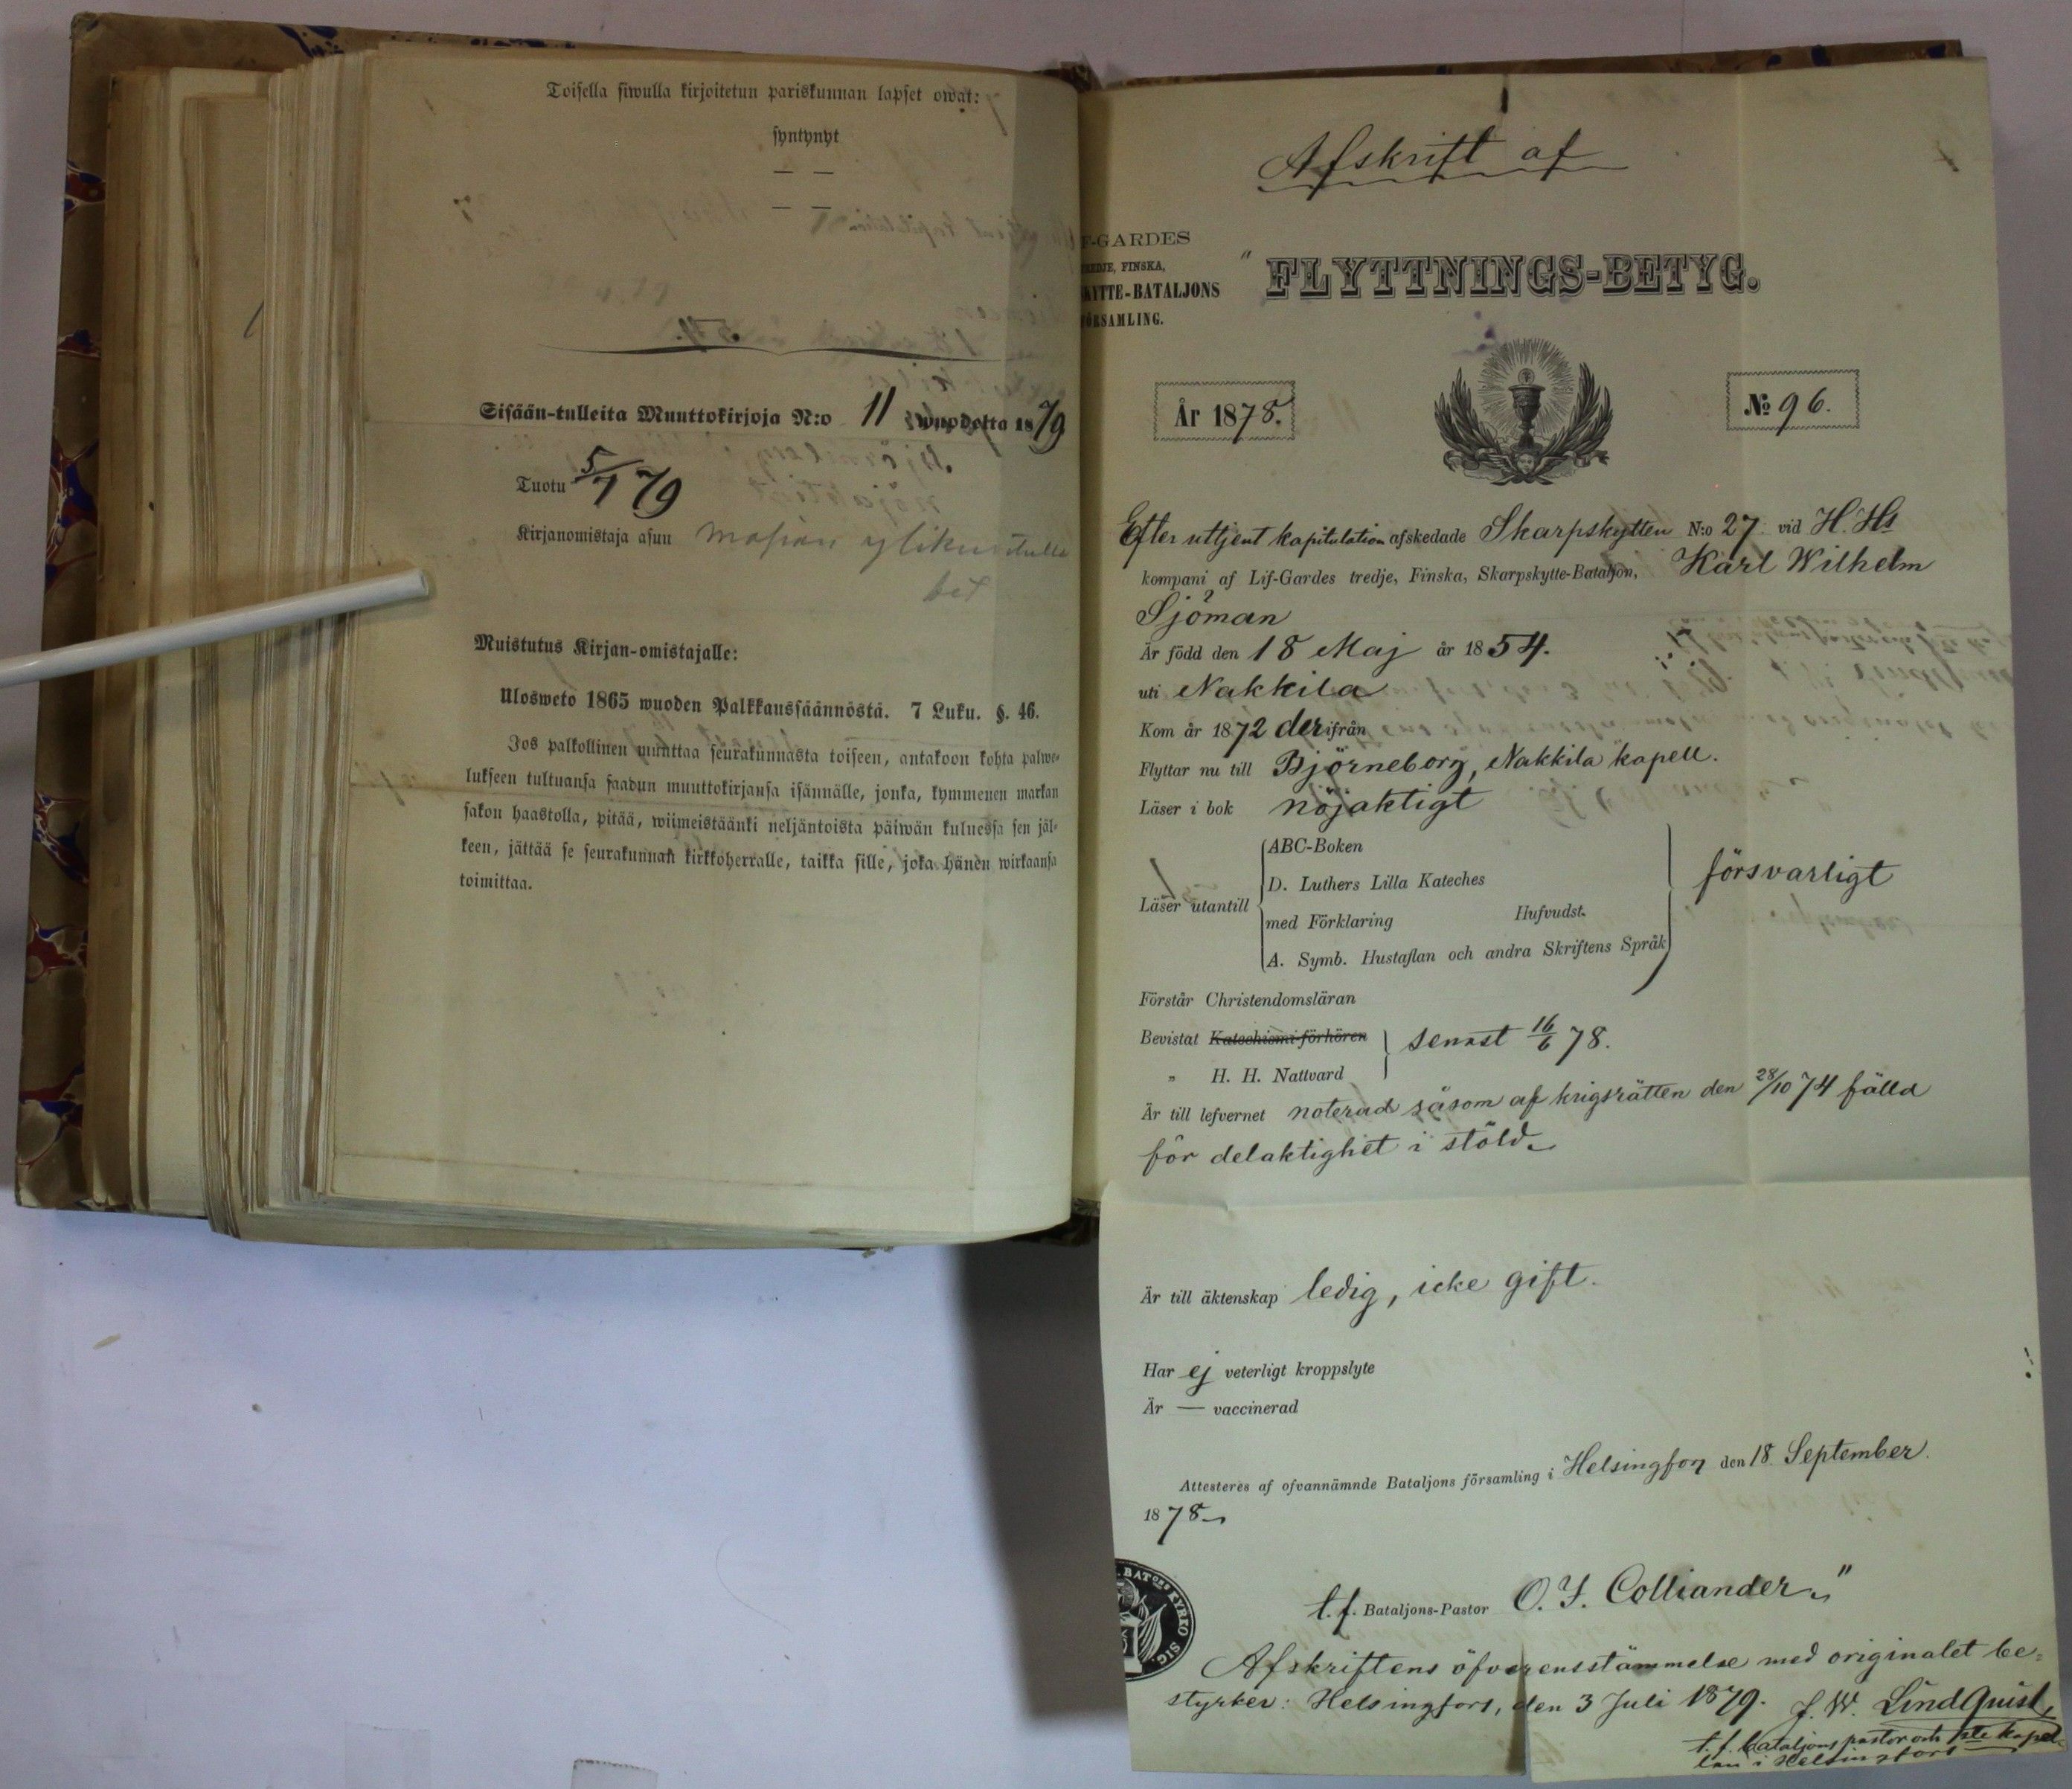 Toisella siwulla kirjoitetun pariskunnan lapset owat:
syntynyt
— —
— —
Sisään-tulleita Muuttokirjoja N:o 11 wuodelta 1879
Tuotu 5/7 79
Kirjanomistaja asuu
Muistutus Kirjan-omistajalle:
Ulosweto 1865 wuoden Palkkaussäännöstä. 7 Luku. §. 46.
Jos palkollinen muuttaa seurakunnasta toiseen, antakoon kohta palwe-
lukseen tultuansa saadun muuttokirjansa isännälle, jonka, kymmenen markan
sakon haastolla, pitää, wiimeistäänki neljäntoista päiwän kuluessa sen jäl-
keen, jättää se seurakunnan kirkkoherralle, taikka sille, joka hänen wirkaansa
toimittaa.
Afskrift af
F-GARDES
REDJE, FINSKA,
KYTTE-BATALJONS
ÖRSAMLING.
" FLYTTNINGS-BETYG.
År 1878.
No 96.
Efter uttjent kapitulation afskedade Skarpskytten N:o 27 vid H. Hs
kompani af Lif-Gardes tredje, Finska, Skarpskytte-Bataljon, Karl Wilhelm
Sjöman
Är född den 18 Maj år 1854.
uti Nakkila
Kom år 1872 derifrån
Flyttar nu till Björneborg, Nakkila kapell.
Läser i bok nöjaktigt
Läser utantill
ABC-Boken
D. Luthers Lilla Kateches
med Förklaring Hufvudst.
A. Symb. Hustaflan och andra Skriftens Språk
försvarligt
Förstår Christendomsläran
Bevistat Katechismi-förhören
" H. H. Nattvard
senast 16/6 78.
Är till lefvernet noterad såsom af krigsrätten den 28/10 74 fälld
för delaktighet i stöld.
Är till äktenskap ledig, icke gift.
Har ej veterligt kroppslyte
Är — vaccinerad
Attesteres af ofvannämnde Bataljons församling i Helsingfors den 18 September
1878
BATons KYRKO SIG.
t.f. Bataljons-Pastor O. I. Colliander "
Afskriftens öfverensstämmelse med originalet be-
styrker: Helsingfors, den 3 Juli 1879. J. W. Lindquist,
t. f. bataljons pastor och kapel-
lan i Helsingfors